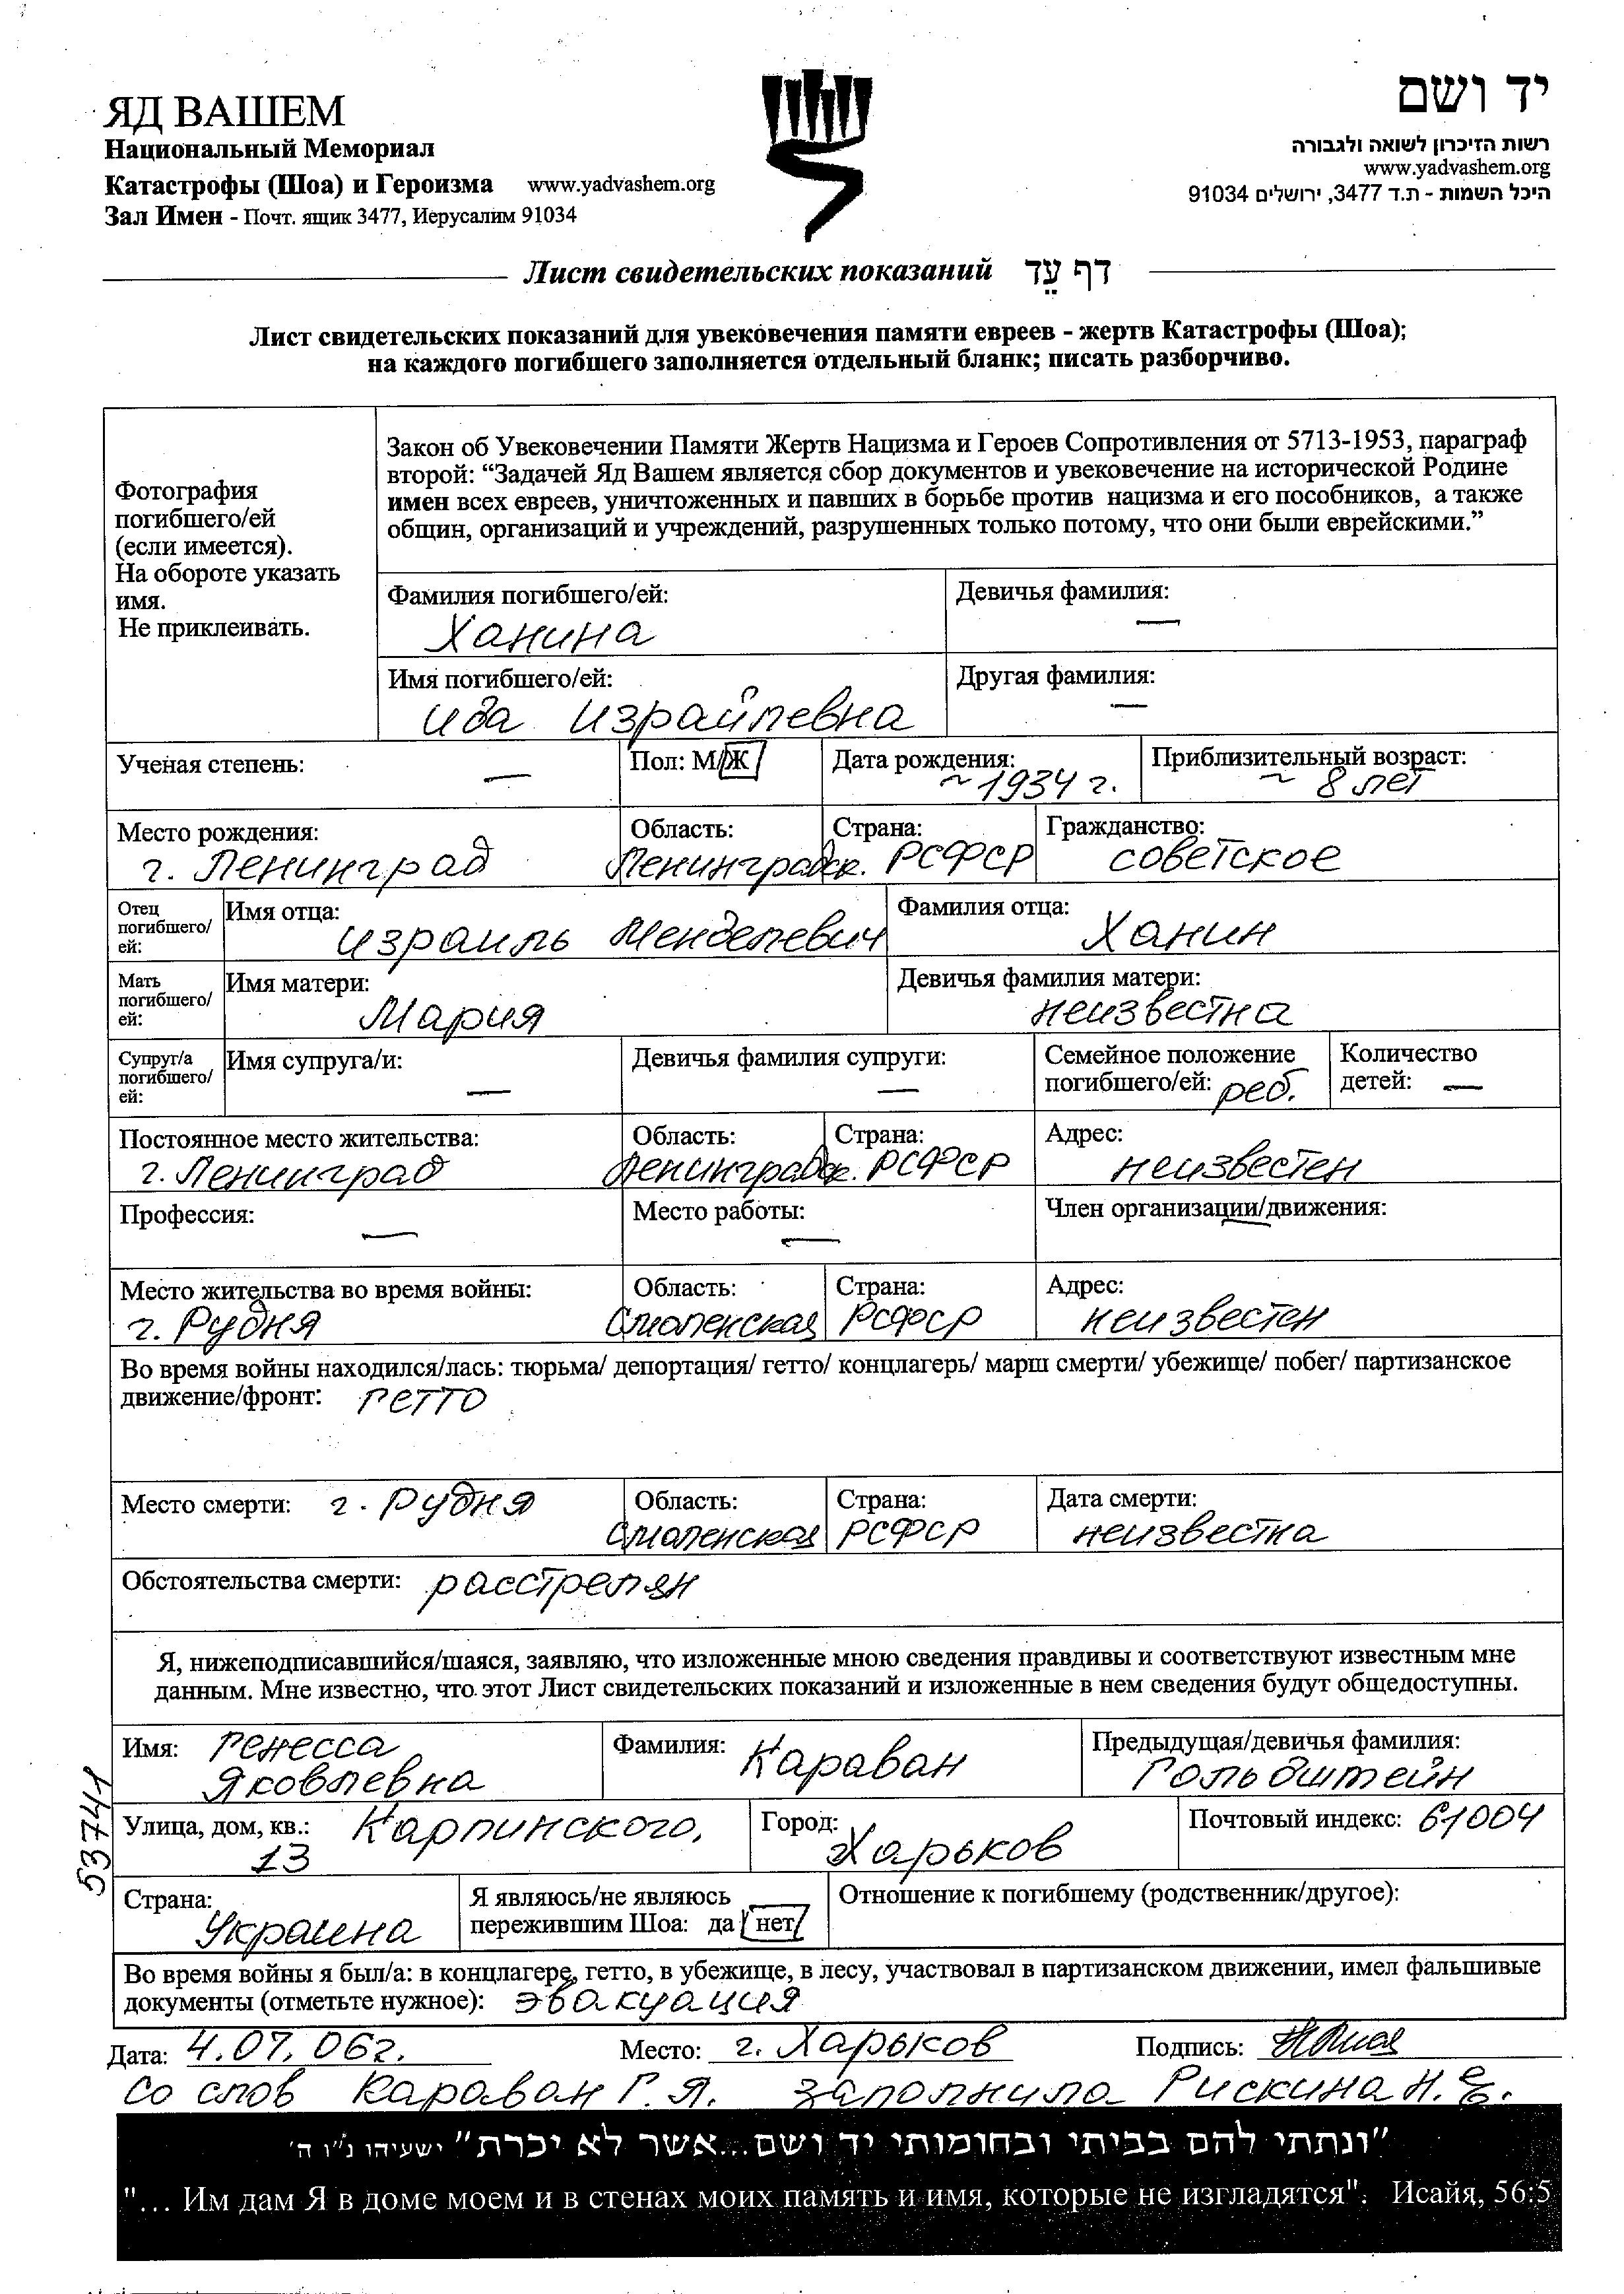 ЯД ВАШЕМ
Национальный Мемориал
Катастрофы (Шоа) и Героизма www.yadvashem.org
Зал Имен - Почт. ящик 3477, Иерусалим 91034
יד ושם
רשות הזיכרון לשואה ולגבורה
www.yadvashem.org
היכל השמות - ת.ד 3477, ירושלים 91034
Лист свидетельских показаний דף עֵד
Лист свидетельских показаний для увековечения памяти евреев - жертв Катастрофы (Шоа);
на каждого погибшего заполняется отдельный бланк; писать разборчиво.
Фотография
погибшего/ей
(если имеется).
На обороте указать
имя.
Не приклеивать.
Закон об Увековечении Памяти Жертв Нацизма и Героев Сопротивления от 5713-1953, параграф
второй: “Задачей Яд Вашем является сбор документов и увековечение на исторической Родине
имен всех евреев, уничтоженных и павших в борьбе против нацизма и его пособников, а также
общин, организаций и учреждений, разрушенных только потому, что они были еврейскими.”
Фамилия погибшего/ей: Девичья фамилия:
Ханина —
Имя погибшего/ей: Другая фамилия:
Ида Израйлевна —
Ученая степень: — Пол: М/Ж Дата рождения: Приблизительный возраст:
~1934 г. ~ 8 лет
Место рождения: Область: Страна: Гражданство:
г. Ленинград Ленинградск. РСФСР советское
Отец
погибшего/
ей:
Имя отца: Фамилия отца:
Израиль Менделевич Ханин
Мать
погибшего/
ей:
Имя матери: Девичья фамилия матери:
Мария неизвестна
Супруг/а
погибшего/
ей:
Имя супруга/и: — Девичья фамилия супруги: —
Семейное положение
погибшего/ей: реб.
Количество
детей: —
Постоянное место жительства: Область: Страна: Адрес:
г. Ленинград Ленинградск. РСФСР неизвестен
Профессия: — Место работы: — Член организации/движения: —
Место жительства во время войны: Область: Страна: Адрес:
г. Рудня Смоленская РСФСР неизвестен
Во время войны находился/лась: тюрьма/ депортация/ гетто/ концлагерь/ марш смерти/ убежище/ побег/ партизанское
движение/фронт: гетто
Место смерти: г. Рудня Область: Страна: Дата смерти:
Смоленская РСФСР неизвестна
Обстоятельства смерти: расстрелян
Я, нижеподписавшийся/шаяся, заявляю, что изложенные мною сведения правдивы и соответствуют известным мне
данным. Мне известно, что этот Лист свидетельских показаний и изложенные в нем сведения будут общедоступны.
Имя: Ренесса Фамилия: Караван Предыдущая/девичья фамилия:
Яковлевна Гольдштейн
53741
Улица, дом, кв.: Карпинского, Город: Почтовый индекс: 61004
13 Харьков
Страна: Я являюсь/не являюсь Отношение к погибшему (родственник/другое):
Украина пережившим Шоа: да/нет
Во время войны я был/а: в концлагере, гетто, в убежище, в лесу, участвовал в партизанском движении, имел фальшивые
документы (отметьте нужное): эвакуация
Дата: 4.07.06г. Место: г. Харьков Подпись:
Со слов Караван Г.Я. заполнила Рискина Н.Е.
”ונתתי להם בביתי ובחומותי יד ושם...אשר לא יכרת” ישעיהו נ”ו ה’
"... Им дам Я в доме моем и в стенах моих память и имя, которые не изгладятся". Исайя, 56:5